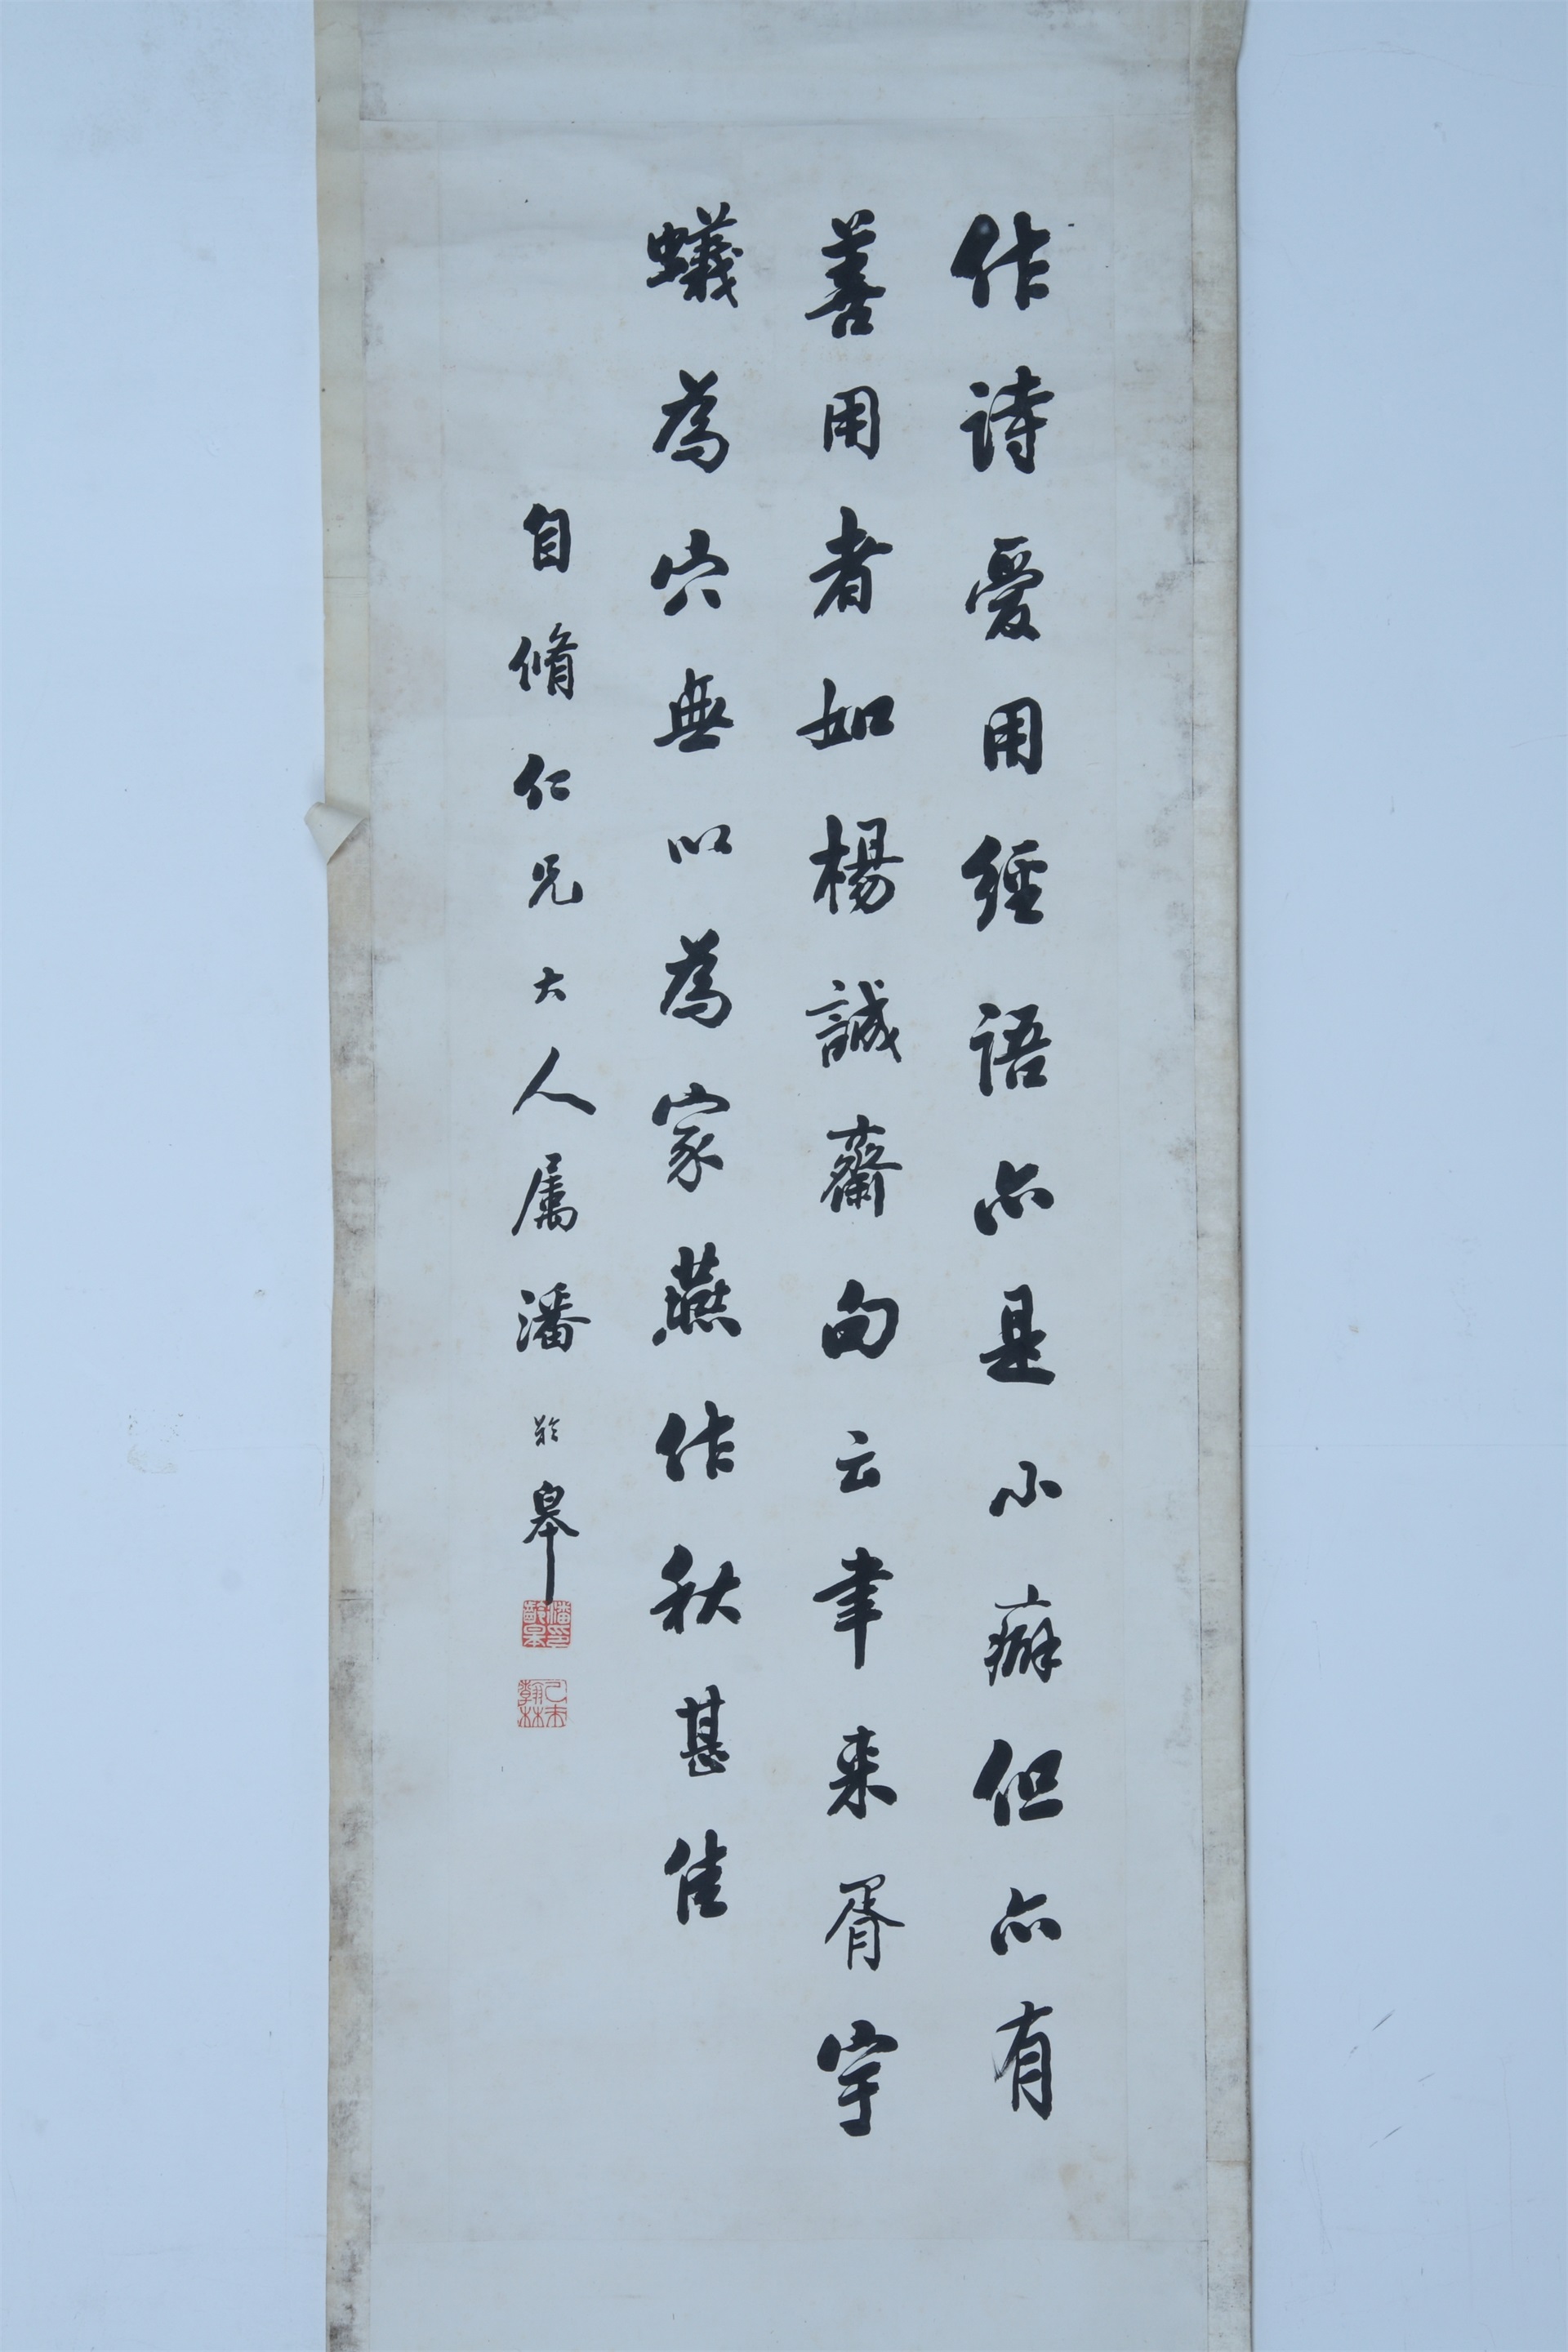 作詩爱用經語亦是小癖但亦有
善用者如楊誠齋句云聿来胥宇
蟻為穴無以為家燕作秋甚佳
自脩仁兄大人属潘齡皋
潘齡皋印
己未翰林